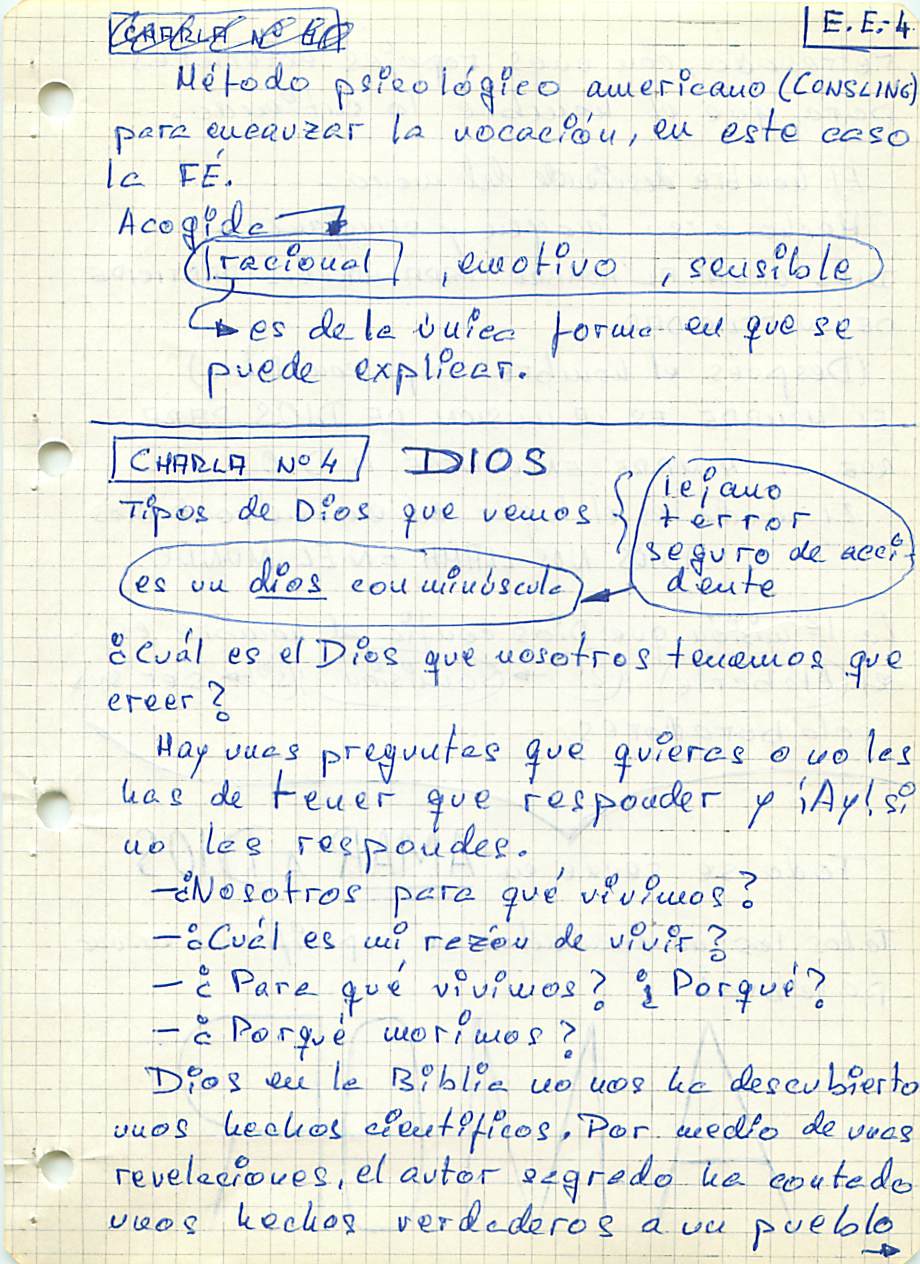 E. E.-4
Método psicológico americano (CONSLING)
para encauzar la vocación, en este caso
la FÉ.
Acogida
racional , emotivo , sensible
es de la única forma en que se
puede explicar.
CHARLA Nº 4 DIOS
Tipos de Dios que vemos { lejano
terror
seguro de acci-
dente
es un dios con minúscula
¿Cuál es el Dios que nosotros tenemos que
creer?
Hay unas preguntas que quieras o no las
has de tener que responder y ¡Ay! si
no las respondes.
-¿Nosotros para qué vivimos?
-¿Cuál es mi razón de vivir?
-¿Para qué vivimos? ¿Porqué?
-¿Porqué morimos?
Dios en la Biblia no nos ha descubierto
unos hechos científicos. Por medio de unas
revelaciones, el autor sagrado ha contado
unos hechos verdaderos a un pueblo